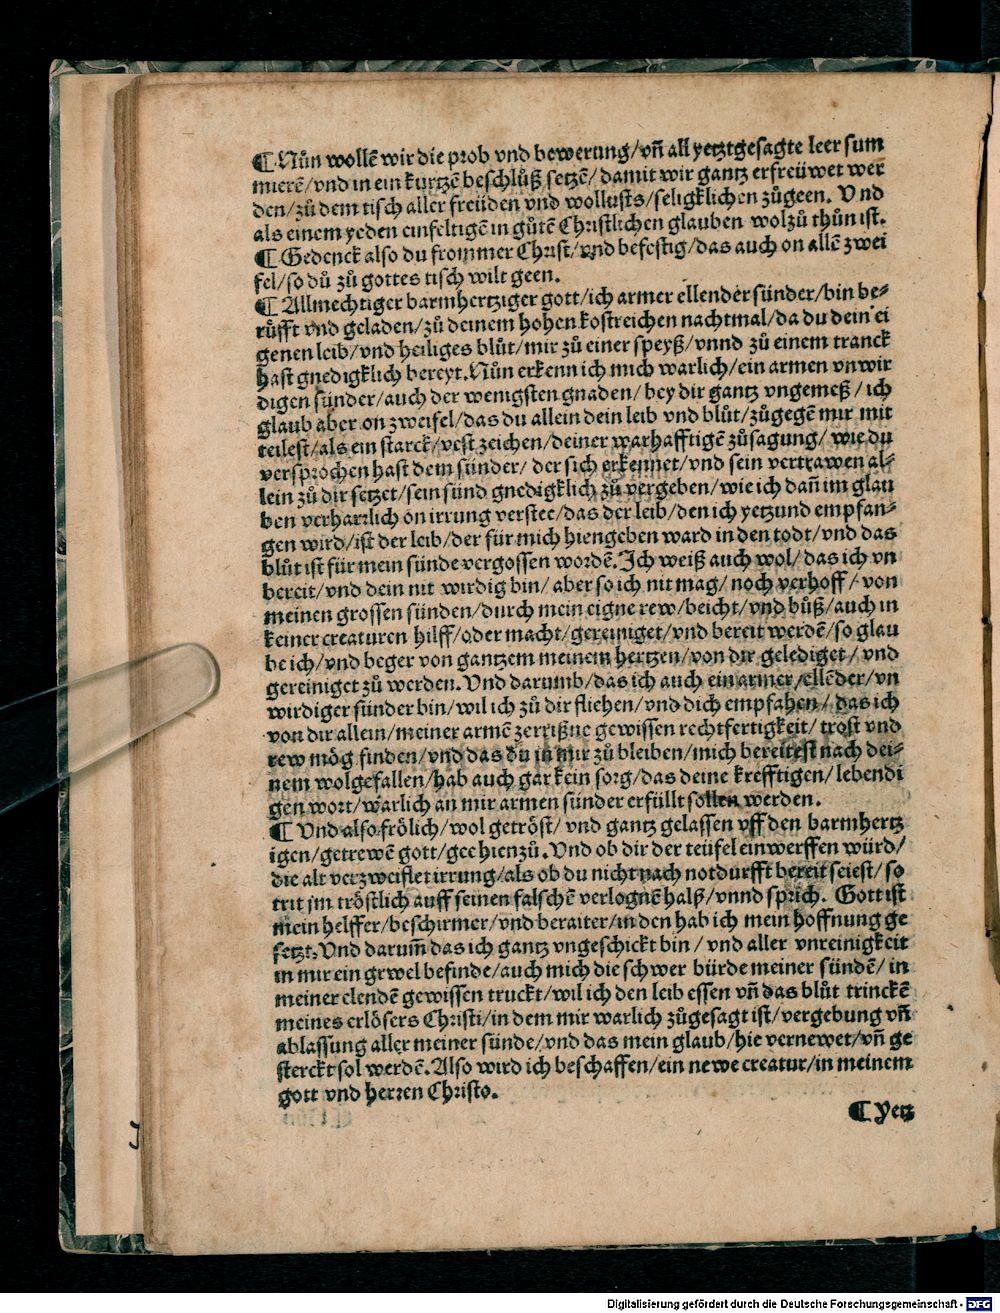 ¶ Nůn wollē wir die prob vnd bewerung/vn̄ all yetztgesagte leer sum
mierē/vnd in ein kurtzē beschlůß setzē/damit wir gantz erfreüwet wer
den/zů dem tisch aller freüden vnd wollusts/seligklichen zůgeen. Vnd
als einem yeden einfeltigē in gůtē Christlichen glauben wolzů thůn ist.
¶ Gedenck also du frommer Christ/vnd befestig/das auch on allē zwei
fel/so dů zů gottes tisch wilt geen.
¶ Allmechtiger barmhertziger gott/ich armer ellender sünder/bin be⸗
růfft vnd geladen/zů deinem hohen kostreichen nachtmal/da du dein ei
genen leib/vnd heiliges blůt/mir zů einer speyß/vnnd zů einem tranck
hast gnedigklich bereyt. Nůn erkenn ich mich warlich/ein armen vnwir
digen sünder/auch der wenigsten gnaden/bey dir gantz vngemeß/ich
glaub aber on zweifel/das du allein dein leib vnd blůt/zůgegē mir mit
teilest/als ein starck/vest zeichen/deiner warhafftigē zůsagung/wie du
versprochen hast dem sünder/der sich erkennet/vnd sein vertrawen al⸗
lein zů dir setzet/sein sünd gnedigklich zů vergeben/wie ich dan̄ im glau
ben verharrlich on irrung verstee/das der leib/den ich yetzund empfan⸗
gen wird/ist der leib/der für mich hiengeben ward in den todt/vnd das
blůt ist für mein sünde vergossen wordē. Ich weiß auch wol/das ich vn
bereit/vnd dein nit wirdig bin/aber so ich nit mag/noch verhoff/von
meinen grossen sünden/durch mein eigne rew/beicht/vnd bůß/auch in
keiner creaturen hilff/oder macht/gereiniget/vnd bereit werdē/so glau
be ich/vnd beger von gantzem meinem hertzen/von dir gelediget/vnd
gereiniget zů werden. Vnd darumb/das ich auch ein armer/ellēder/vn
wirdiger sünder bin/wil ich zů dir fliehen/vnd dich empfahen/das ich
von dir allein/meiner armē zerrißne gewissen rechtfertigkeit/trost vnd
rew mög finden/vnd das du in mir zů bleiben/mich bereitest nach dei⸗
nem wolgefallen/hab auch gar kein sorg/das deine krefftigen/lebendi
gen wort/warlich an mir armen sünder erfüllt sollen werden.
¶ Vnd also frölich/wol getröst/vnd gantz gelassen vff den barmhertz
igen/getrewē gott/gee hienzů. Vnd ob dir der teüfel einwerffen würd/
die alt verzweiflet irrung/als ob du nicht nach notdurfft bereit seiest/so
trit jm tröstlich auff seinen falschē verlognē halß/vnnd sprich. Gott ist
mein helffer/beschirmer/vnd beraiter/in den hab ich mein hoffnung ge
setzt. Vnd darum̄ das ich gantz vngeschickt bin/vnd aller vnreinigkeit
in mir ein grwel befinde/auch mich die schwer bürde meiner sündē/in
meiner elendē gewissen truckt/wil ich den leib essen vn̄ das blůt trinckē
meines erlösers Christi/in dem mir warlich zůgesagt ist/vergebung vn̄
ablassung aller meiner sünde/vnd das mein glaub/hie vernewet/vn̄ ge
sterckt sol werdē. Also wird ich beschaffen/ein newe creatur/in meinem
gott vnd herren Christo.
¶ Yetz
Digitalisierung gefördert durch die Deutsche Forschungsgemeinschaft - DFG